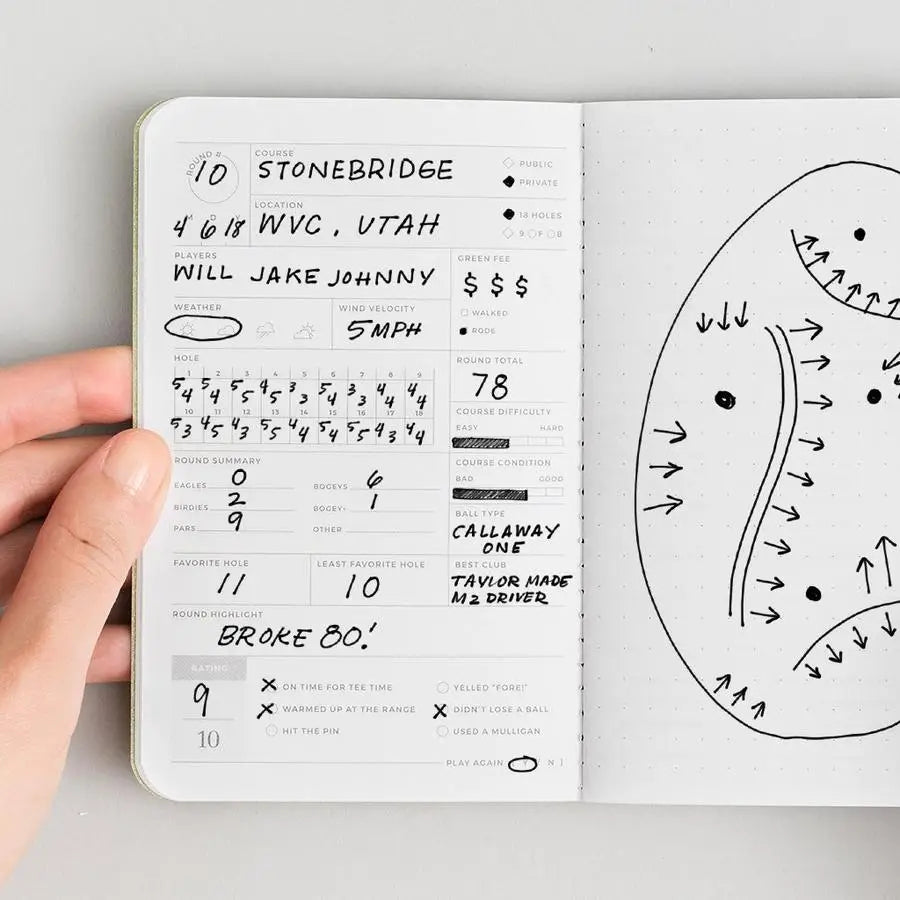 ROUND # COURSE
10 STONEBRIDGE ◇ PUBLIC
◆ PRIVATE
M D Y LOCATION
4 6 18 WVC, UTAH ◆ 18 HOLES
◇ 9 ○F ○B
PLAYERS GREEN FEE
WILL JAKE JOHNNY $ $ $
WEATHER WIND VELOCITY □ WALKED
5MPH ■ RODE
HOLE ROUND TOTAL
1 2 3 4 5 6 7 8 9 78
5/4 5/4 3/5 4/5 3/3 5/4 3/3 4/4 4/4
10 11 12 13 14 15 16 17 18 COURSE DIFFICULTY
5/3 4/5 4/3 5/5 4/4 5/4 5/5 4/3 4/4 EASY HARD
ROUND SUMMARY COURSE CONDITION
EAGLES 0 BOGEYS 6 BAD GOOD
BIRDIES 2 BOGEY+ 1
PARS 9 OTHER BALL TYPE
CALLAWAY
ONE
FAVORITE HOLE LEAST FAVORITE HOLE BEST CLUB
11 10 TAYLOR MADE
M2 DRIVER
ROUND HIGHLIGHT
BROKE 80!
RATING
9 X ON TIME FOR TEE TIME ○ YELLED "FORE!"
X WARMED UP AT THE RANGE X DIDN'T LOSE A BALL
10 ○ HIT THE PIN ○ USED A MULLIGAN
PLAY AGAIN ( Y / N )